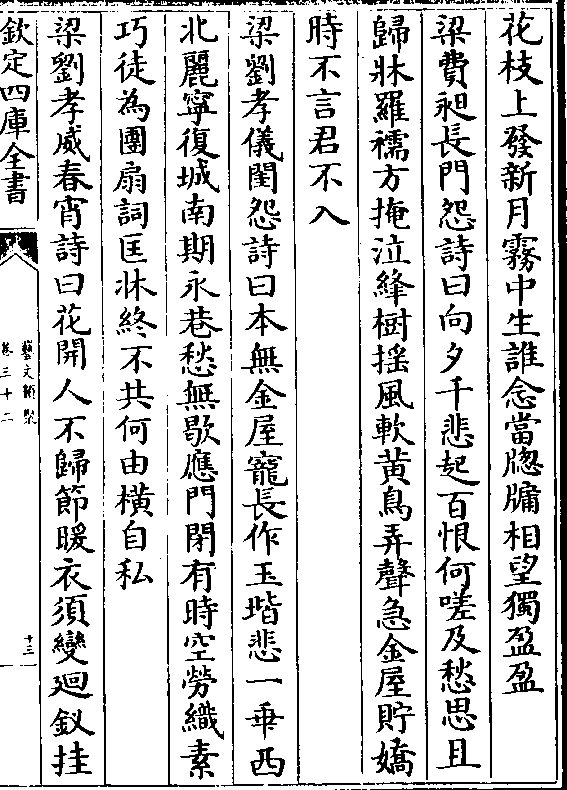 花枝上發新月霧中生誰念當牎牖相望獨盈盈
梁費昶長門怨詩曰向夕千悲起百恨何嗟及愁思且
歸牀羅襦方掩泣絳樹揺風軟黄鳥弄聲急金屋貯嬌
時不言君不入
梁劉孝儀閨怨詩曰本無金屋寵長作玉堦悲一乖西
北麗寧復城南期永巷愁無歇應門閉有時空勞織素
巧徒為團扇詞匡牀終不共何由横自私
梁劉孝威春宵詩曰花開人不歸節暖衣須變廻釵挂
欽定四庫全書
藝文類聚
卷三十二
十三